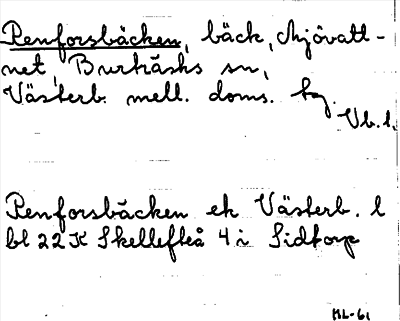 Renforsbäcken, bäck, Mjövatt-
net, Burträsks sn,
Västerb. mell. doms. tg.
Vb. l.
Renforsbäcken ek Västerb. l
bl 22 K Skellefteå 4 i Sidtorp
KL-61